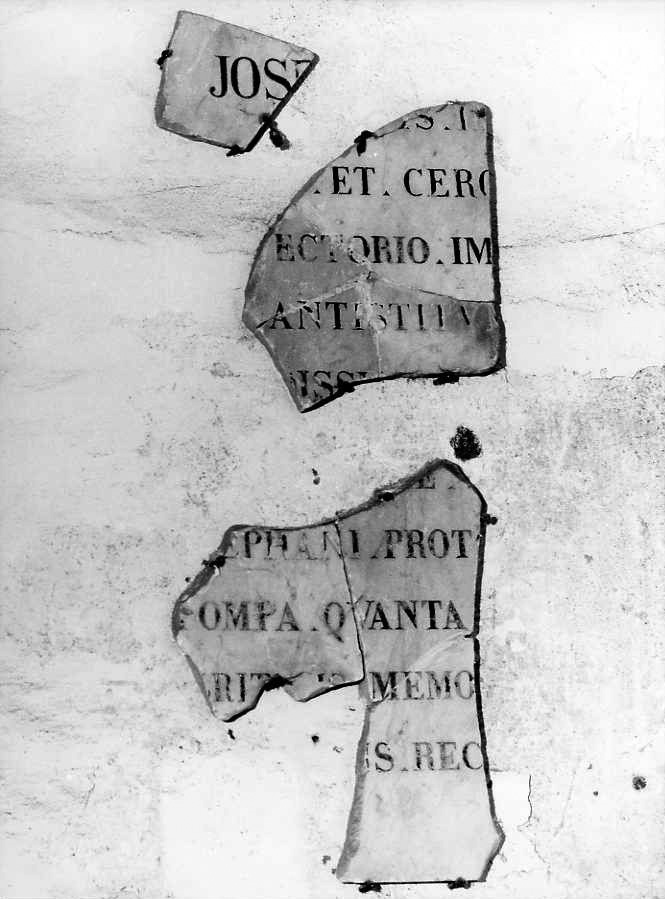 JOSE
IS.
ET. CERO
ECTORIO. IM
ANTISTITV
DISSI
E
EPHANI. PROT
POMPA. QVANTA
RIT IS MEMO
IS. REC